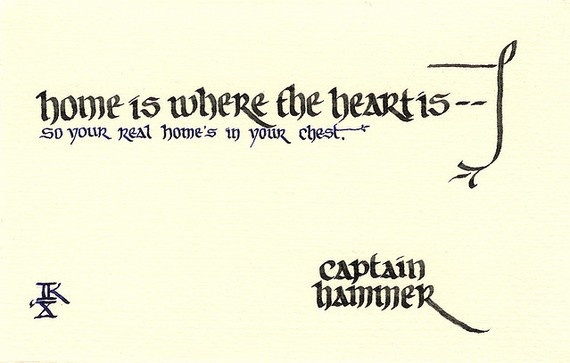 home is where the heart is--
so your real home's in your chest.
captain
hammer